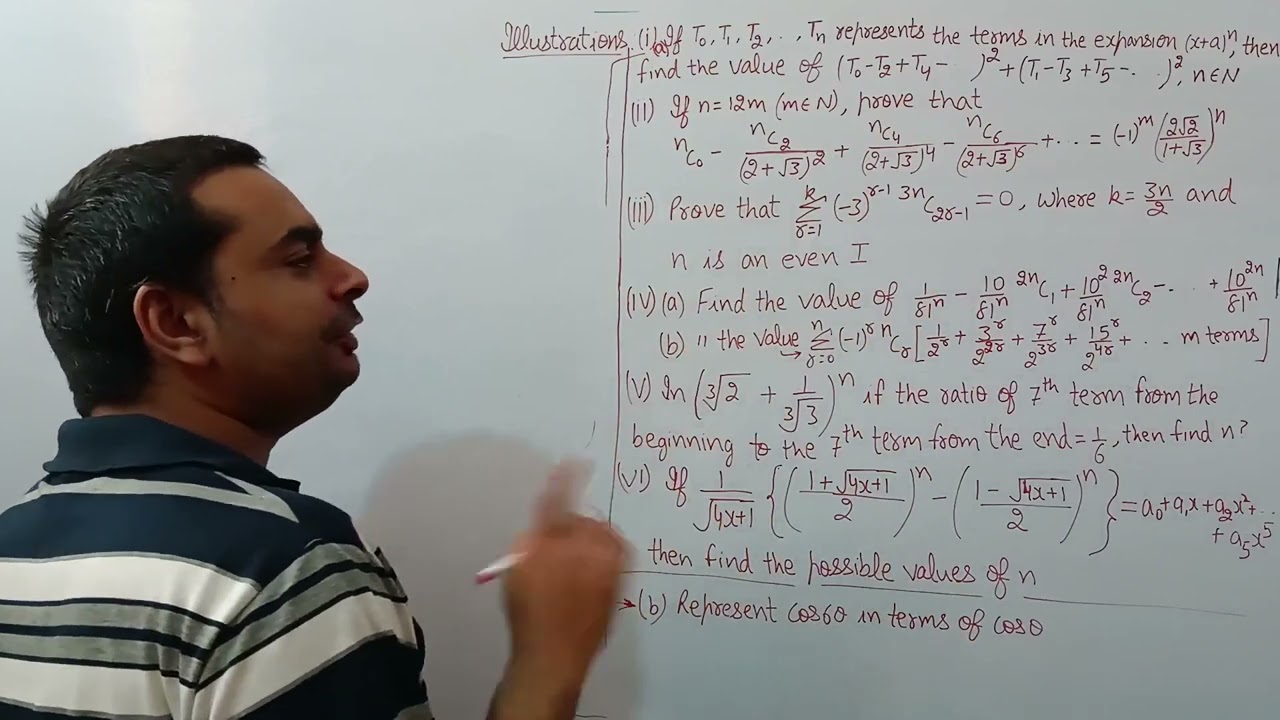 Illustrations (i)(a) If T₀, T₁, T₂, .., Tₙ represents the terms in the expansion (x+a)ⁿ, then
find the value of (T₀-T₂+T₄-..)²+(T₁-T₃+T₅-..)², n∈N
(ii) If n=12m (m∈N), prove that
ⁿC₀ - ⁿC₂/(2+√3)² + ⁿC₄/(2+√3)⁴ - ⁿC₆/(2+√3)⁶ + ... = (-1)ᵐ (2√2/(1+√3))ⁿ
(iii) Prove that Σ_{r=1}^{k} (-3)^{r-1} ³ⁿC_{2r-1} = 0, where k = 3n/2 and
n is an even I
(iv)(a) Find the value of 1/81ⁿ - 10/81ⁿ ²ⁿC₁ + 10²/81ⁿ ²ⁿC₂ - .. + 10²ⁿ/81ⁿ
(b) " the value Σ_{r=0}^{n} (-1)^r ⁿC_r [1/2^r + 3^r/2^{2r} + 7^r/2^{3r} + 15^r/2^{4r} + .. m terms]
(v) In (³√2 + 1/³√3)ⁿ if the ratio of 7th term from the
beginning to the 7th term from the end = 1/6, then find n?
(vi) If 1/√(4x+1) {((1+√(4x+1))/2)ⁿ - ((1-√(4x+1))/2)ⁿ} = a₀+a₁x+a₂x²+..
+ a₅x⁵
then find the possible values of n
→(b) Represent cos6θ in terms of cosθ